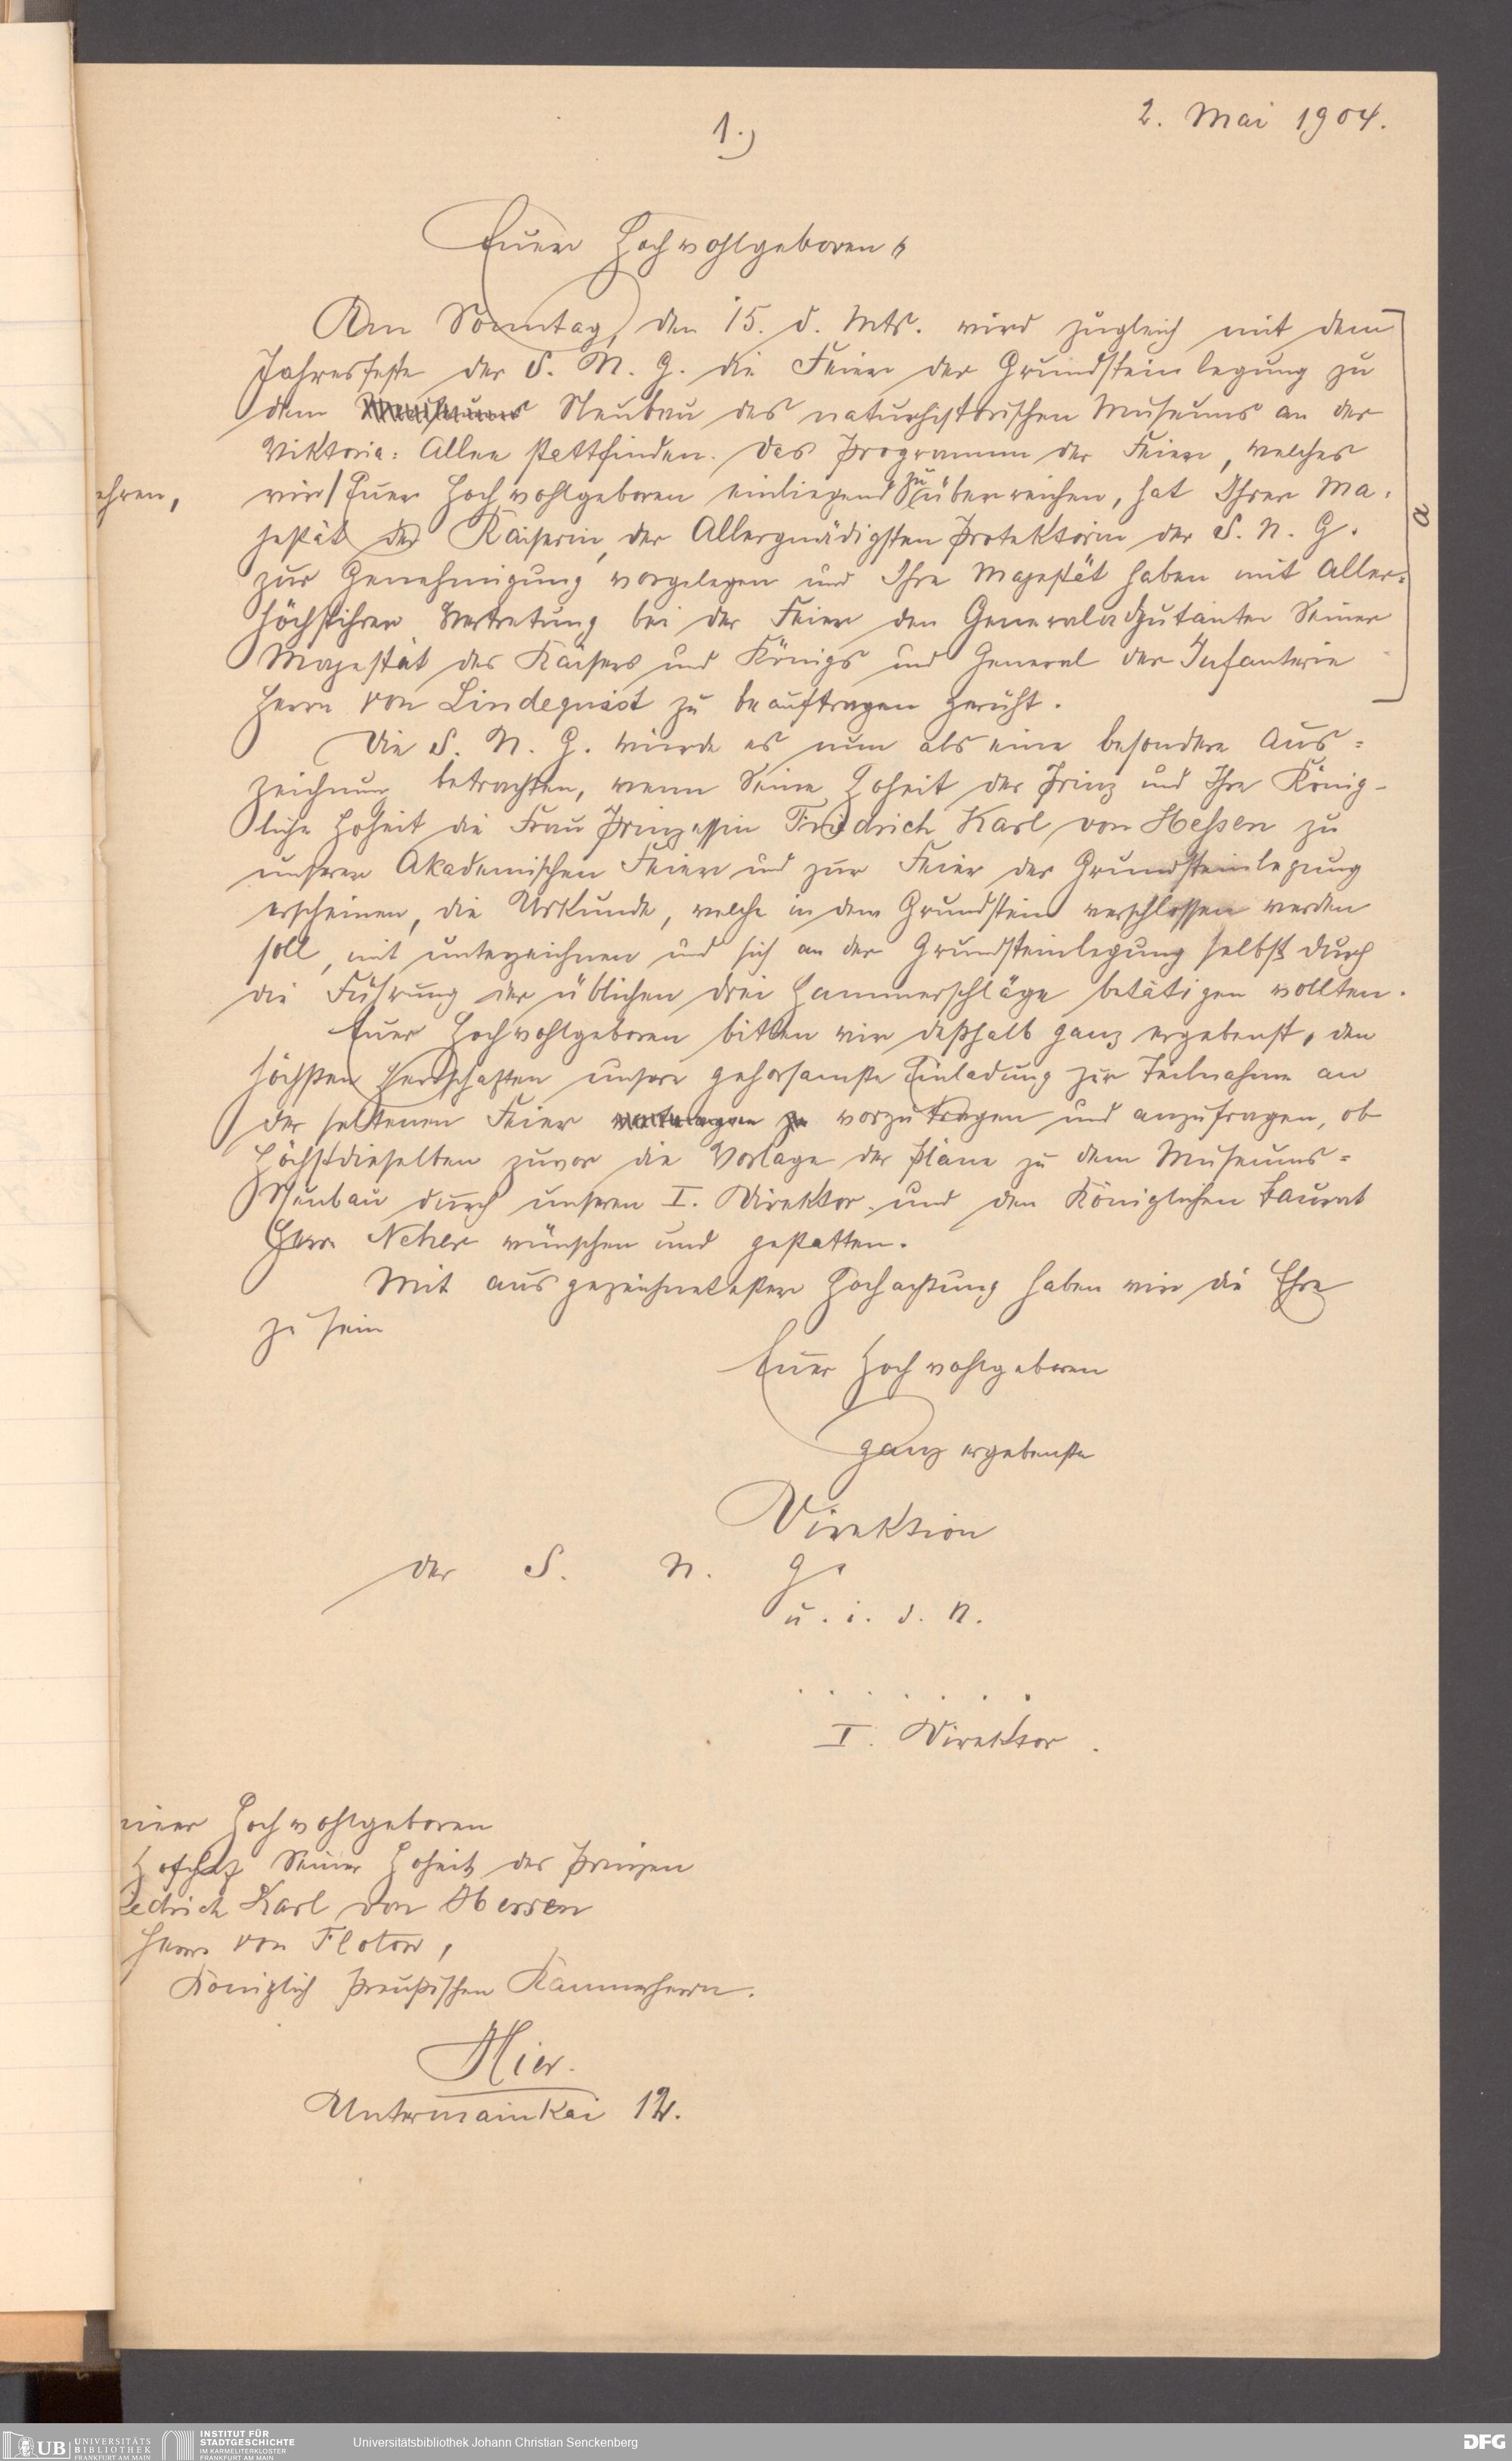 2. Mai 1904.
1.)
Euer Hochwohlgeboren
Am Sonntag, den 15. d. Mts. wird zugleich mit dem
Jahresfeste der S. N. G. die Feier der Grundsteinlegung zu
dem Neubau des naturhistorischen Museums an der
Viktoria-Allee stattfinden. Das Programm der Feier, welches
ehren,
wir Euer Hochwohlgeboren einliegend zu überreichen, hat Ihrer Ma-
jestät der Kaiserin, der Allergnädigsten Protektorin der S. N. G.
a
zur Genehmigung vorgelegen und Ihre Majestät haben mit Aller-
höchstihrer Vertretung bei der Feier den Generaladjutanten Seiner
Majestät des Kaisers und Königs und General der Infanterie
Herrn von Lindequist zu beauftragen geruht.
Die S. N. G. würde es nun als eine besondere Aus-
zeichnung betrachten, wenn Seine Hoheit der Prinz und Ihre König-
liche Hoheit die Frau Prinzessin Friedrich Karl von Hessen zu
unserer Akademischen Feier und zur Feier der Grundsteinlegung
erscheinen, die Urkunde, welche in dem Grundstein verschlossen werden
soll, mit unterzeichnen und sich an der Grundsteinlegung selbst durch
die Führung der üblichen drei Hammerschläge betätigen wollten.
Euer Hochwohlgeboren bitten wir deßhalb ganz ergebenst, den
höchsten Herrschaften unsere gehorsamste Einladung zur Teilnahme an
der seltenen Feier vorzutragen und anzufragen, ob
Höchstdieselben zuvor die Vorlage der Pläne zu dem Museums-
Neubau durch unseren I. Direktor und den Königlichen Baurat
Herr Neher wünschen und gestatten.
Mit ausgezeichnetster Hochachtung haben wir die Ehre
zu sein
Euer Hochwohlgeboren
ganz ergebenste
Direktion
der S. N. G.
u. i. d. N.
. . . . . . .
I. Direktor.
einer Hochwohlgeboren
Hofchef Seiner Hoheit des Prinzen
edrich Karl von Hessen
Herrn von Flotow,
Königlich Preußischen Kammerherrn.
Hier.
Untermainkai 12.
UB UNIVERSITÄTS
BIBLIOTHEK
FRANKFURT AM MAIN
INSTITUT FÜR
STADTGESCHICHTE
IM KARMELITERKLOSTER
FRANKFURT AM MAIN
Universitätsbibliothek Johann Christian Senckenberg
DFG